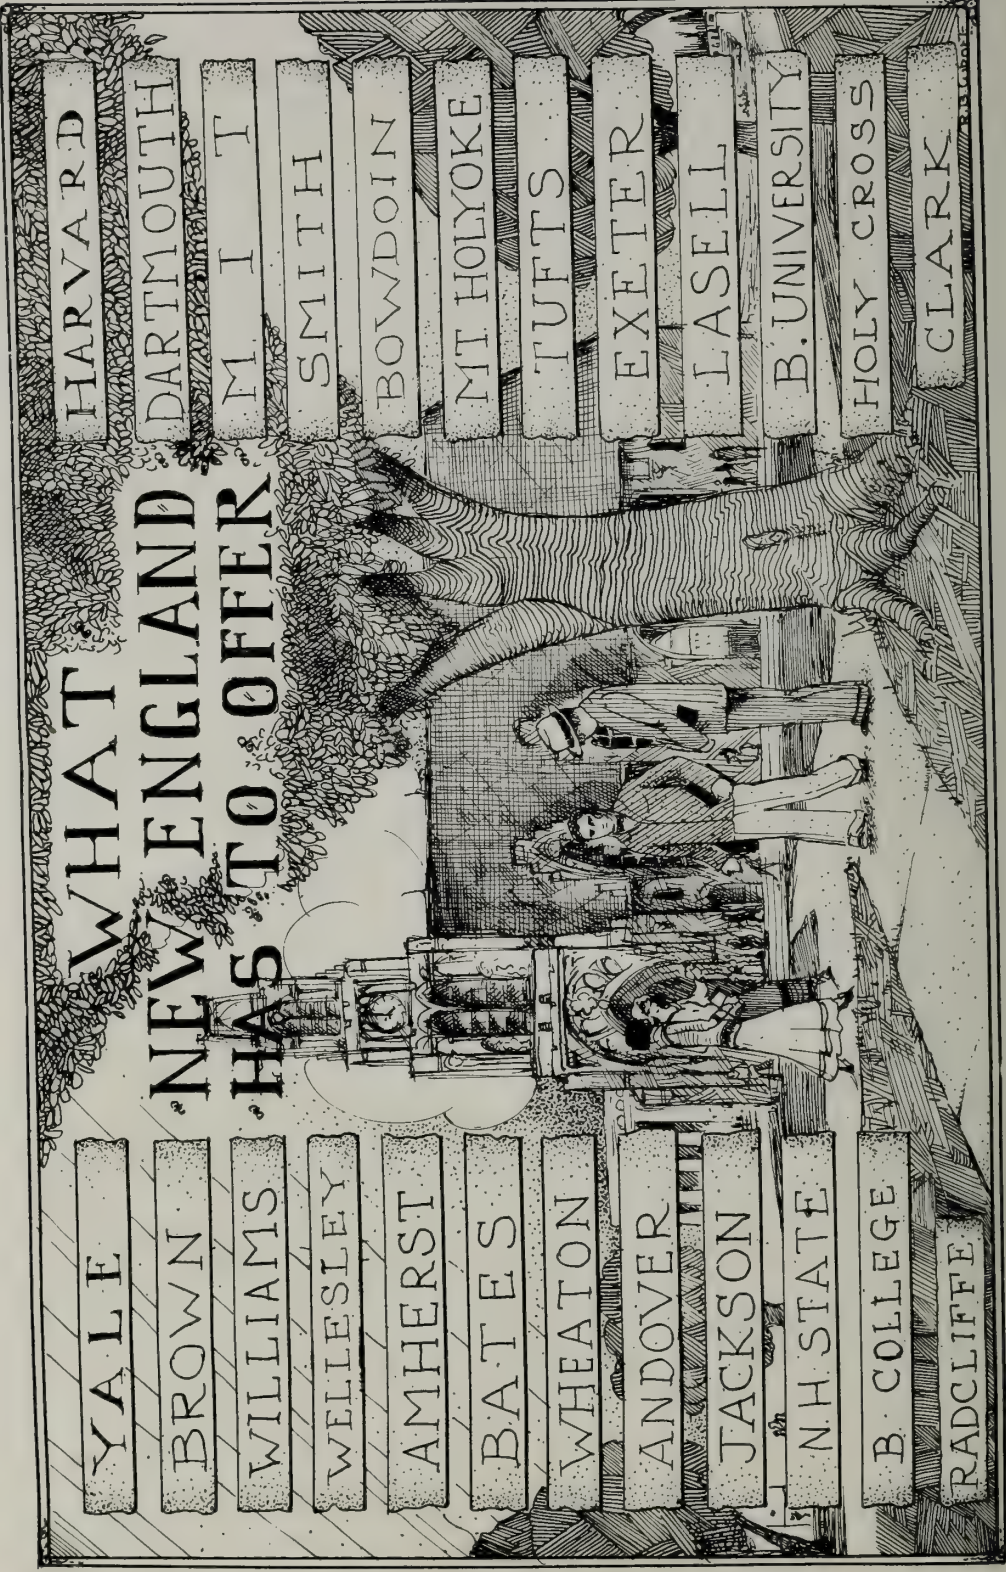 WHAT
NEW ENGLAND
HAS TO OFFER
YALE
BROWN
WILLIAMS
WELLESLEY
AMHERST
BATES
WHEATON
ANDOVER
JACKSON
N.H. STATE
B. COLLEGE
RADCLIFFE
HARVARD
DARTMOUTH
M I T
SMITH
BOWDOIN
MT. HOLYOKE
TUFTS
EXETER
LASELL
B. UNIVERSITY
HOLY CROSS
CLARK